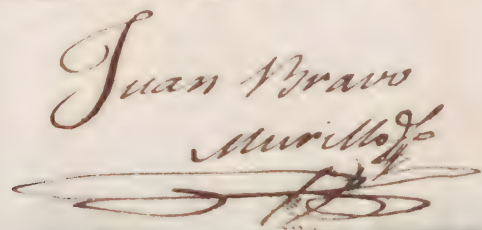 Juan Bravo
Murillo